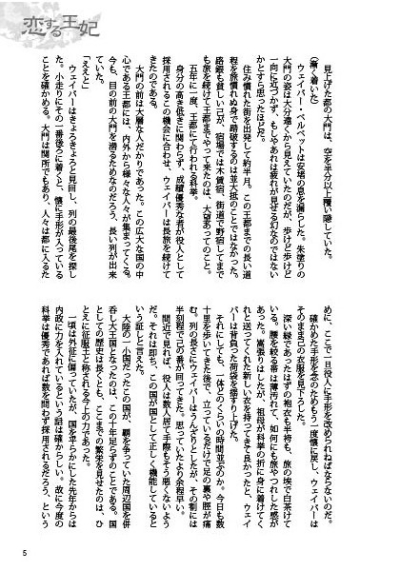 恋する王妃
見上げた都の大門は、空を半分以上覆い隠していた。
(漸く着いた)
ウェイバー・ベルベットは安堵の息を漏らした。朱塗りの
大門の姿は大分遠くから見えていたのだが、歩けど歩けど
一向に近づかず、もしやあれは疲れが見せる幻なのではない
かとすら思ったほどだ。
住み慣れた街を出発して約半月。この王都までの長い道
程を旅慣れぬ身で踏破するのは並大抵のことではなかった。
路銀も貧しい己が、宿場では木賃宿、街道で野宿してまで
も旅を続けて王都までやって来たのは、大望あってのこと。
五年に一度、王都にて行われる科挙。
身分の高き低きに関わらず、成績優秀な者が役人として
採用されるこの機会に合わせ、ウェイバーは長旅を続けて
きたのである。
大門の前は大層な人だかりであった。この広大な国の中
心である王都には、内外から様々な人々が集まってくる。
今も、目の前の大門を潜るためなのだろう、長い列が出来
ていた。
「ええと」
ウェイバーはきょろきょろと見回し、列の最後尾を探し
た。小走りにその一番後ろに着くと、懐に手形が入っている
ことを確かめる。大門は関所でもあり、人々は都に入るた
めに、ここで一旦役人に手形を改められねばならないのだ。
確かめた手形を念のためもう一度懐に戻し、ウェイバーは
そのまま己の衣服を見下ろした。
深い緑であったはずの袍衣も半袴も、旅の埃で白茶けて
いる。腰を絞る帯は薄汚れて、如何にも旅やつれした感が
あった。嵩張りはしたが、祖母が科挙の折に身に着けてく
れと送ってくれた新しい衣を持ってきて良かったと、ウェイ
バーは背負った荷袋を揺すり上げた。
それにしても、一体どのくらいの時間を並ぶのか。今日も数
十里を歩いてきた後で、立っているだけで足の裏や脛が痛
む。列の長さにウェイバーはうんざりとしたが、その割には
半刻程で己の番が回ってきた。思っていたより余程早い。
間近で見れば、役人は数人居て手際もそう悪くないよう
だ。それは即ち、この国が国として正しく機能していると
いう証しと言えた。
大陸の一小国だったこの国が、覇を争っていた周辺国を併
呑し大王国となったのは、この十年足らずのことである。国
としての歴史は長くとも、ここまでの繁栄を見せたのは、ひ
とえに征服王と称される今上の力であった。
一頃は外征に偏っていたが、国を平らかにした先年からは
内政に力を入れているという話は確からしい。故に今度の
科挙は優秀であれば数を問わず採用されるだろう、という
5